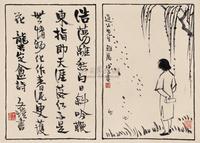 浩蕩離愁白日斜吟鞭
東指即天涯落紅不是
無情物化作春泥更護
花 龔定盦詩